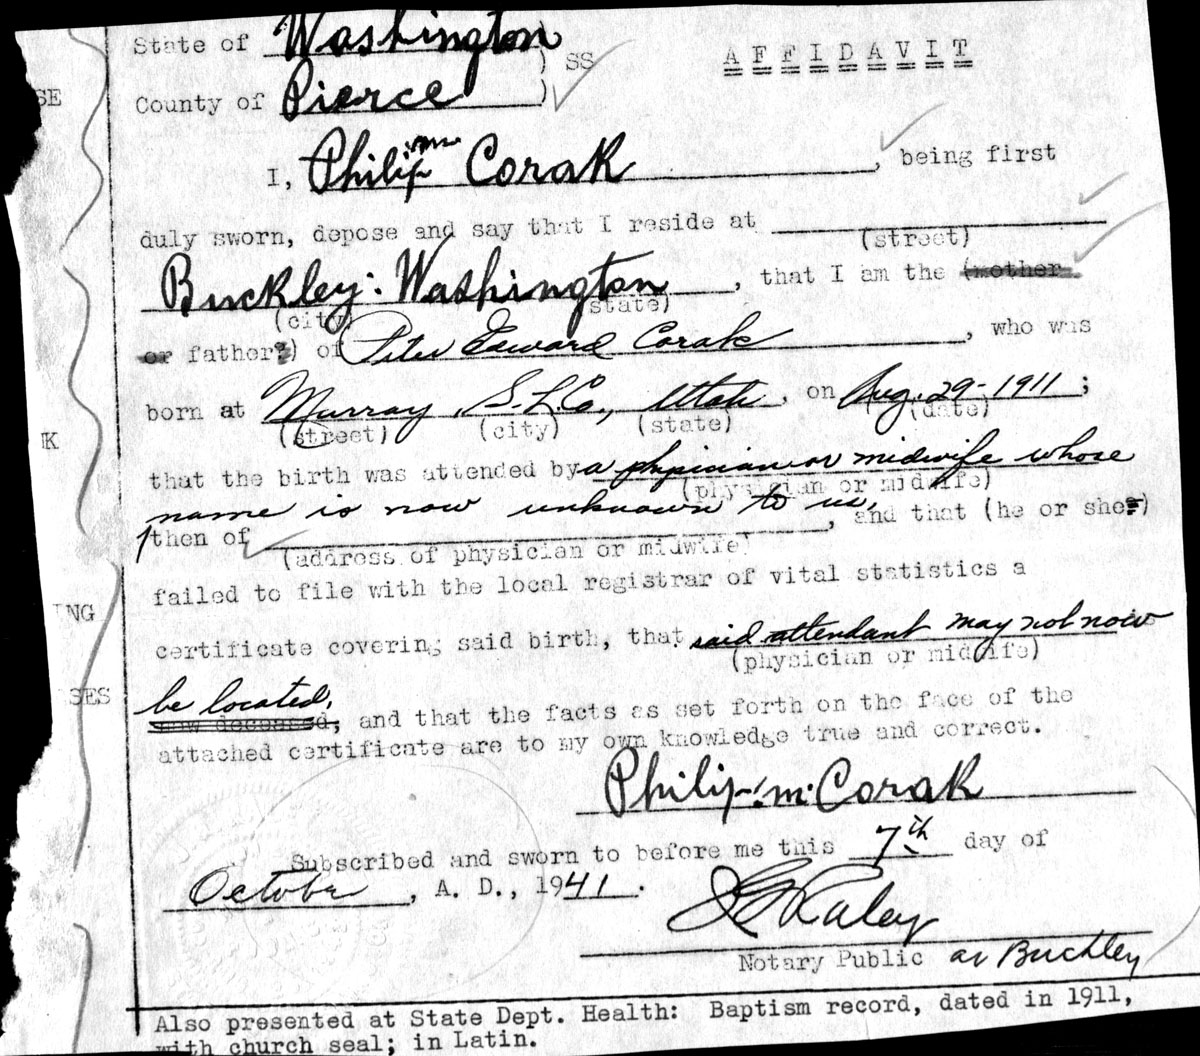 State of Washington
) SS
AFFIDAVIT
SE
County of Pierce )
m
I, Philip Corak , being first
duly sworn, depose and say that I reside at
(street)
Buckley. Washington , that I am the (mother
(city) (state)
or father) of Peter Edward Corak , who was
born at Murray, S.L.Co., Utah, on Aug. 29-1911;
(street) (city) (state) (date)
K
that the birth was attended by a physician or midwife whose
(physician or midwife)
name is now unknown to us,
then of , and that (he or she)
(address of physician or midwife)
failed to file with the local registrar of vital statistics a
NG
certificate covering said birth, that said attendant may not now
(physician or midwife)
SES
be located,
now deceased; and that the facts as set forth on the face of the
attached certificate are to my own knowledge true and correct.
Philip. m. Corak
Subscribed and sworn to before me this 7th day of
October , A. D., 1941.
Notary Public at Buckley
Also presented at State Dept. Health: Baptism record, dated in 1911,
with church seal; in Latin.